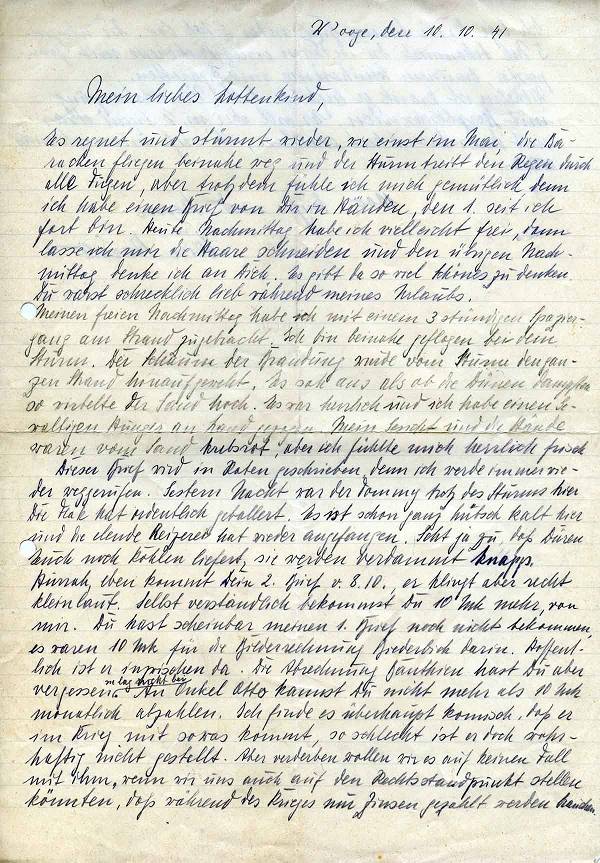 Wooge, den 10.10.41
Mein liebes Lottenkind,
Es regnet und stürmt wieder, wie einst im Mai, die Ba-
racken fliegen beinahe weg und der Sturm treibt den Regen durch
alle Fugen, aber trotzdem fühle ich mich gemütlich, denn
ich habe einen Brief von Dir in Händen, den 1. seit ich
fort bin. Heute Nachmittag habe ich vielleicht frei, dann
lasse ich mir die Haare schneiden und den übrigen Nach-
mittag denke ich an Dich. Es gibt da so viel schönes zu denken
Du warst schrecklich lieb während meines Urlaubs.
Meinen freien Nachmittag habe ich mit einem 3 stündigen Spazier-
gang am Strand zugebracht. Ich bin beinahe geflogen bei dem
Sturm. Der Schaum der Brandung wurde vom Sturm den gan-
zen Strand hinaufgeweht. Es sah aus als ob die Dünen dampften
so wirbelte der Sand hoch. Es war herrlich und ich habe einen Ge-
waltigen Hunger an Land gezogen. Mein Gesicht und die Hände
waren vom Sand krebsrot, aber ich fühlte mich herrlich frisch
Dieser Brief wird in Raten geschrieben, denn ich werde immer wie-
der weggerufen. Gestern Nacht war der Tommy trotz des Sturms hier
Die Flak hat ordentlich geballert. Es ist schon ganz hübsch kalt hier
und die elende Heizerei hat wieder angefangen. Seht ja zu, daß Düren
Euch noch Kohlen liefert, sie werden verdammt knapp.
Hurrah, eben kommt Dein 2. Brief v. 8.10., er klingt aber recht
kleinlaut. Selbstverständlich bekommst Du 10 Mk mehr, von
mir. Du hast scheinbar meinen 1. Brief noch nicht bekommen,
es waren 10 Mk für die Bilderrechnung Biederlich darin. Hoffent-
lich ist er inzwischen da. Die Abrechnung Gauthien hast Du aber
vergessen. sie lag nicht bei An Onkel Otto kannst Du nicht mehr als 10 Mk
monatlich abzahlen. Ich finde es überhaupt komisch, daß er
im Krieg mit sowas kommt, so schlecht ist er doch wahr-
haftig nicht gestellt. Aber verderben wollen wir es auf keinen Fall
mit ihm, wenn wir uns auch auf den Rechtsstandpunkt stellen
könnten, daß während des Krieges nur Zinsen gezahlt werden brauchen.